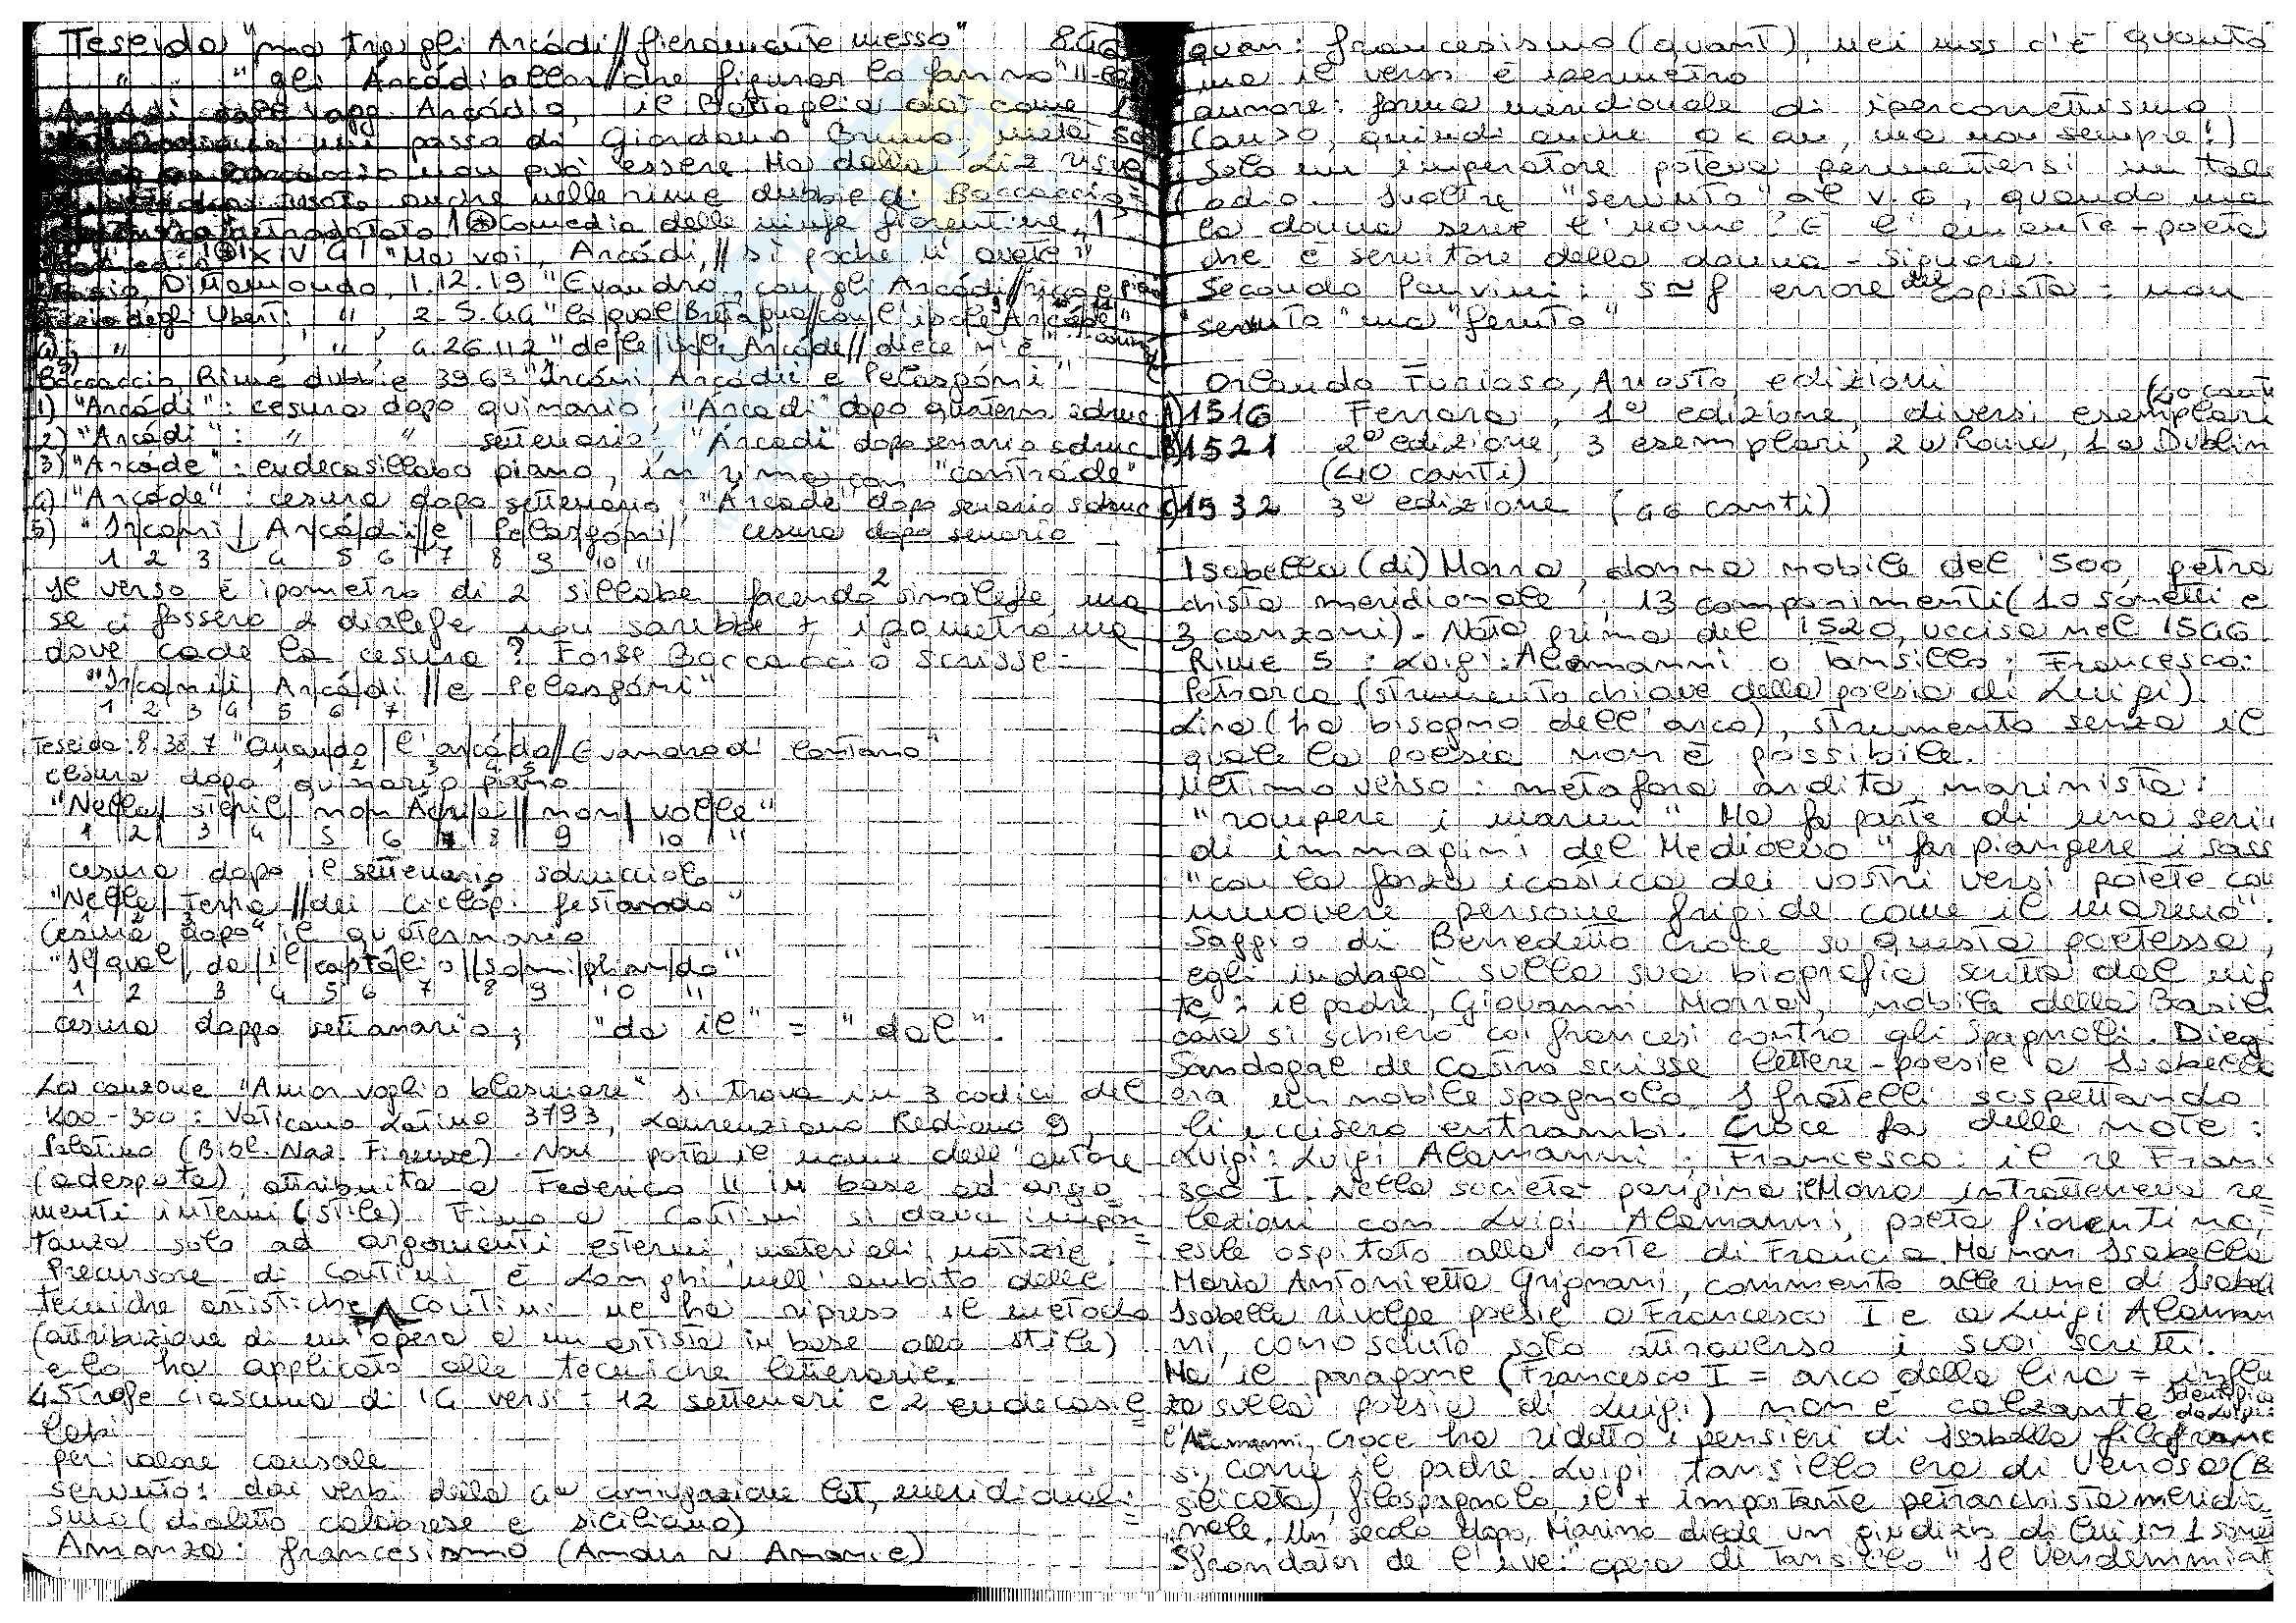 Teseida "ma tra gli Arcádi // fieramente messo"
" " " gli Árcádi allor // che figurar lo fanno"
Arcádi dall' agg. Arcádio, il Battaglia dà come 1
un passo di Giordano Bruno, metà
non può essere. Ma dalla Liz
usato anche nelle rime dubbie di Boccaccio =
retrodatato 1 ⊛ Comedia delle ninfe fiorentine, 1
"Ma voi, Arcádi, // sì poche n' avete"
Fazio, Dittamondo, 1.12.19 "Evandro, con gli Arcádi
Fazio degli Uberti, " , 2.5.44 "la qual Bretagna // con l'isole Arcáde"
4) " , " , 4.26.112 "delle isole Arcáde // diece n'è
Boccaccio, Rime dubbie 39.63 "Ircáni, Arcádii e Pelasgóni"
1) "Arcádi": cesura dopo quinario; "Árcadi" dopo quatern. sdruc
2) "Arcádi": " " settenario; "Árcadi" dopo senario sdruc
3) "Arcáde": endecasillabo piano, in rima con "contrade"
4) "Arcáde": cesura dopo settenario; "Árcade" dopo senario sdruc
5) "Ircani/ Ar/cá/di/e/ Pe/las/góni/ cesura dopo senario
1 2 3 4 5 6 7 8 9 10 11
Il verso è ipometro di 2 sillabe facendo 2 sinalefe, ma
se ci fossero 2 dialefe non sarebbe + ipometro ma
dove cade la cesura? Forse Boccaccio scrisse:
"Ir/cani/i/ Ar/cá/di // e Pelasgóni"
1 2 3 4 5 6 7
Teseida: 8.38.7 "Quando / l' arcádo // Evandro di lontano"
1 2 3 4 5
cesura dopo quinario piano
"Nella/ steril/ non Acria // non/ volle"
1 2 3 4 5 6 7 8 9 10 11
cesura dopo il settenario sdrucciolo
"Nella/ terra // dei Ciclópi festando"
1 2 3 4
Cesura dopo il quaternario
"Il/ qual/ da/ il/ captólio // somigliando"
1 2 3 4 5 6 7 8 9 10 11
cesura doppo settanario; "da il" = "dal".
La canzone "Amor voglio blasmare" si trova in 3 codici del
'200-'300: Vaticano Latino 3793, Laurenziano Rediano 9,
Palatino (Bibl. Naz. Firenze). Non porta il nome dell' autore
(adespota), attribuita a Federico II in base ad argo
menti interni (stile). Fino a Contini si dava impor=
tanza solo ad argomenti esterni, materiali, notizie.
Precursore di Contini è Longhi nell' ambito delle
tecniche artistiche, Contini ne ha ripreso il metodo
(attribuzione di un' opera a un artista in base allo stile)
e lo ha applicato alle tecniche letterarie.
4 Strofe ciascuna di 14 versi: 12 settenari e 2 endecasil=
labi
per: valore causale
servuto: dai verbi della 4ª coniugazione lat, meridionali=
smo (dialetto calabrese e siciliano)
Amanza: francesismo (Amour ~ Amance)
quan: francesismo (quant), nei mss c'è quanto
ma il verso è ipermetro
aunore: forma meridionale di ipercorrettismo
(au>o, quindi anche o<au, ma non sempre!)
Solo un imperatore poteva permettersi un tale
odio. Inoltre "servuto" al v. 6, quando mai
la donna serve l' uomo? È l' amante-poeta
che è servitore della donna-signora.
Secondo Panvini: s≃f errore del copista: non
"servuto" ma "feruto"
Orlando Furioso, Ariosto, edizioni (40 canti
A) 1516 Ferrara, 1ª edizione, diversi esemplari
B) 1521 2ª edizione, 3 esemplari, 2 a Roma, 1 a Dublin
(40 canti)
C) 1532 3ª edizione (46 canti)
Isabella (di) Morra, donna nobile del '500, petra
chista meridionale, 13 componimenti (10 sonetti e
3 canzoni). Nata prima del 1520, uccisa nel 1546.
Rime 5: Luigi: Alamanni o Tansillo; Francesco:
Petrarca (strumento chiave della poesia di Luigi).
Lira (ha bisogno dell' arco), strumento senza il
quale la poesia non è possibile.
Ultimo verso: metafora ardita, marinista:
"rompere i marmi" Ma fa parte di una seri
di immagini del Medioevo "far piangere i sass
"con la forza icastica dei vostri versi potete com
muovere persone frigide come il marmo".
Saggio di Benedetto Croce su questa poetessa,
egli indagò sulla sua biografia scritta dal nip
te: il padre, Giovanni Morra, nobile della Basili
cata si schierò coi francesi contro gli spagnoli. Dieg
Sandogal de Castro scrisse lettere-poesie a Isabella
era un nobile spagnolo. I fratelli sospettando
li uccisero entrambi. Croce fa delle note:
Luigi: Luigi Alamanni; Francesco: il re Fran
sco I. Nella società parigina il Morra intratteneva re=
lazioni con Luigi Alamanni, poeta fiorentino,
esule ospitato alla corte di Francia. Ma non Isabella
Maria Antonietta Grignani, commento alle rime di Isabel
Isabella rivolge poesie a Francesco I e a Luigi Alaman
ni, conosciuto solo attraverso i suoi scritti.
Ma il paragone (Francesco I = arco della lira = influ
za sulla poesia di Luigi) non è calzante. Identifica
l'Alamanni, Croce ha ridotto i pensieri di Isabella filofranc
si, come il padre. Luigi Tansillo era di Venosa (Ba
silicata), filospagnolo, il + importante petrarchista meridio
nale. Un secolo dopo, Marino diede un giudizio di lui in 1 sone
"Sfrondator de l' uve": opera di Tansillo "Il vendemmiat